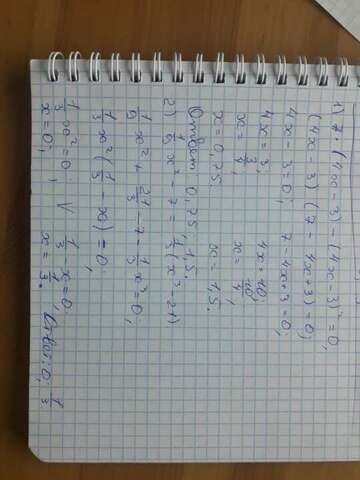 1) 7 · (4x - 3) - (4x - 3)² = 0;
(4x - 3) (7 - 4x + 3) = 0;
4x - 3 = 0; 7 - 4x + 3 = 0;
4x = 3; 4x = 10;
x = 3/4; x = 10/4;
x = 0,75 x = 1,5.
Ответ: 0,75; 1,5.
2) 1/9 x² - 7 = 1/3 (x³ - 21)
1/9 x² + 21/3 - 7 - 1/3 x³ = 0;
1/3 x² (1/3 - x) = 0;
1/3 x² = 0; V 1/3 - x = 0;
x = 0; x = 1/3. Ответ: 0; 1/3